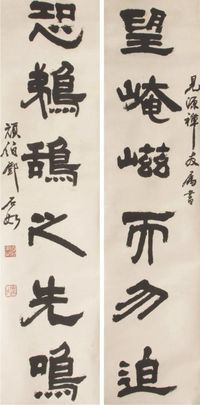 望崦嵫而勿迫
見源禅友屬書
恐鵜鴃之先鳴
頑伯鄧石如